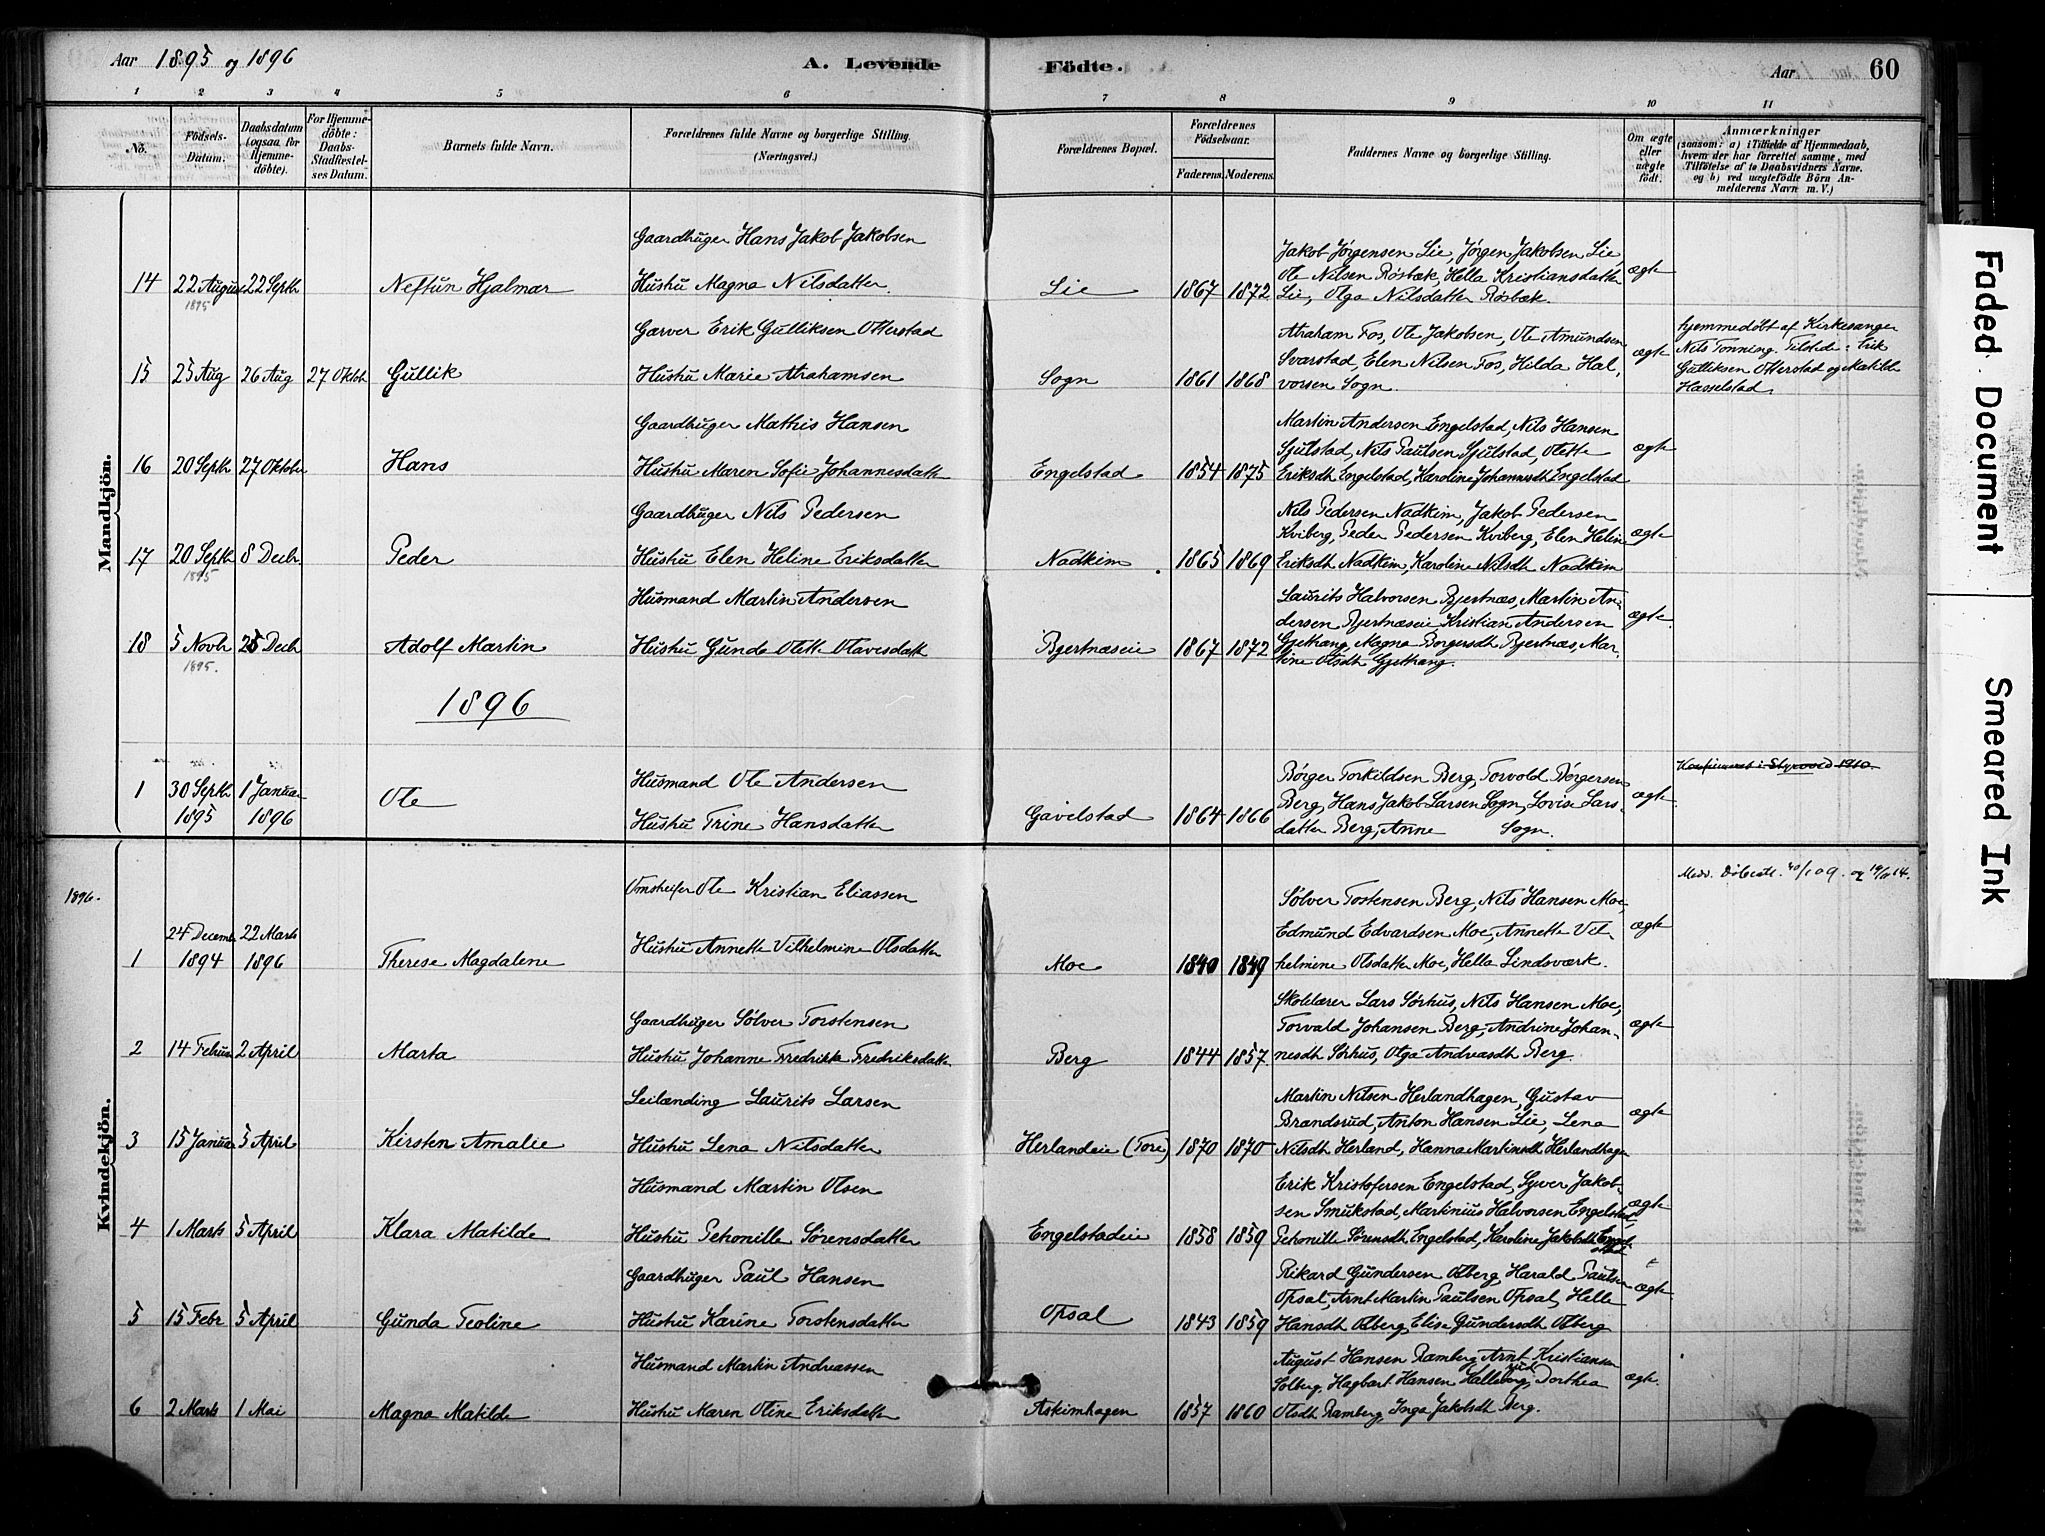 Aar 1895 og 1896
A. Levende Födte.
Aar 60
1 2 3 4 5 6 7 8 9 10 11
No.
Födsels-Datum.
Daabsdatum (ogsaa for Hjemmedöbte).
For Hjemmedöbte: Daabs-Stadfæstelses Datum.
Barnets fulde Navn.
Forældrenes fulde Navne og borgerlige Stilling. (Næringsvei.)
Forældrenes Bopæl.
Forældrenes Födselsaar.
Faderens. Moderens.
Faddernes Navne og borgerlige Stilling.
Om ægte eller uægte födt.
Anmærkninger
(saasom: a) i Tilfælde af Hjemmedaab,
hvem der har forrettet samme, med
Tilföielse af to Daabsvidners Navne.
og b) ved uægtefödte Börn An-
melderens Navn m. V.)
Mandkjön.
Gaardbruger Hans Jakob Jakobsen
Jakob Jørgensen Lie, Jørgen Jakobsen Lie
14 22 August 22 Septb Neftun Hjalmar Hustru Magna Nilsdatter Lie 1867 1872 Ole Nilsen Røsbæk, Hella Kristiansdatter ægte
1895
Lie, Olga Nilsdatter Røsbæk.
Garver Erik Gulliksen Otterstad
Abraham Fos, Ole Jakobsen, Ole Amundsen
15 25 Aug 26 Aug 27 Oktob Gullik Hustru Marie Abrahamsen Sogn 1861 1868 Svarstad, Elen Nilsen Fos, Hilda Hal- ægte
vorsen Sogn.
hjemmedøbt af Kirkesanger
Nils Tonning. Tilstede: Erik
Gulliksen Otterstad og Matilde
Hasselstad.
Gaardbruger Mathis Hansen
Martin Andersen Engelstad, Nils Hansen
Sjulstad, Nils Paulsen Sjulstad, Olette ægte
16 20 Septb 27 Oktober Hans Hustru Maren Sofie Johannesdatt Engelstad 1854 1875 Eriksdt Engelstad, Karoline Johannesdt Engelstad
Gaardbruger Nils Pedersen
Nils Pedersen Nadkim, Jakob Pedersen
Kviberg, Peder Pedersen Kviberg, Elen Heline ægte
17 20 Septb 8 Decbr Peder Hustru Elen Heline Eriksdatter Nadkim 1865 1869 Eriksdt Nadkim, Karoline Nilsdt Nadkim
1895
Husmand Martin Andersen
Laurits Halvorsen Bjertnæs, Martin An-
dersen Bjertnæseie Kristian Andersen ægte.
18 5 Novb 25 Decb Adolf Martin Hustru Gunda Olette Olavesdatt Bjertnæseie 1867 1872 Gjethang, Magna Borgersdt Bjertnæs, Mar-
1895.
tine Olsdt Gjethang.
1896
Husmand Ole Andersen
Konfirmeret i Styrvold 1910.
Børger Torkildsen Berg, Torvold Børgersen
1 30 Septb 1 Januar Ole Berg, Hans Jakob Larsen Sogn, Lovise Lars- ægte
1895 1896 Hustru Trine Hansdatter Gavelstad 1864 1866 datter Berg, Anne Sogn.
Kvindekjön.
1896.
Ole Kristian Eliassen
Medd. Døbeatt. og
Sølver Tostensen Berg, Nils Hansen Moe,
24 Decemb 22 Marts Hustru Annette Vilhelmine Olsdatter Edmund Edvardsen Moe, Annette Vil- ægte
1 1894 1896 Therese Magdalene Moe 1840 1849 helmine Olsdatter Moe, Hella Lindsværk.
Gaardbruger Sølver Torstensen
Skolelærer Lars Sørhus, Nils Hansen Moe,
Torvald Johansen Berg, Andrine Johan- ægte
2 14 Februar 2 April Marta Hustru Johanne Fredrikke Fredriksdatter Berg 1844 1857 nesdt Sørhus, Olga Andreasdt Berg.
Leilænding Laurits Larsen
Martin Nilsen Herlandhagen, Gustav
Brandsrud, Anton Hansen Lie, Lena ægte
3 15 Januar 5 April Kirsten Amalie Hustru Lena Nilsdatter Herlandeie (Tore) 1870 1870 Nilsdt Herland, Hanna Martinsdt Herlandhagen
Husmand Martin Olsen
Erik Kristofersen Engelstad, Syver Jakob-
sen Smukstad, Martinius Halvorsen Engelstad, ægte
4 1 Marts 5 April Klara Matilde Hustru Petronille Sørensdatter Engelstadeie 1858 1859 Petronille Sørensdt Engelstad, Karoline Jakobsdt Engelstad
Gaardbruger Paul Hansen
Rikard Gundersen Olberg, Harald Paulsen
Opsal, Arnt Martin Paulsen Opsal, Helle ægte
5 15 Febr 5 April Gunda Teoline Hustru Karine Torstensdatter Opsal 1843 1859 Hansdt Olberg, Elise Gundersdt Olberg
Husmand Martin Andreassen
August Hansen Ramberg, Arnt Kristiansen
Solberg, Hagbart Hansen Dorthea ægte.
6 2 Marts 1 Mai Magna Matilde Hustru Maren Oline Eriksdatter Askimhagen 1857 1860 Olsdt Ramberg, Inga Jakobsdt Berg.
Faded Document
Smeared Ink